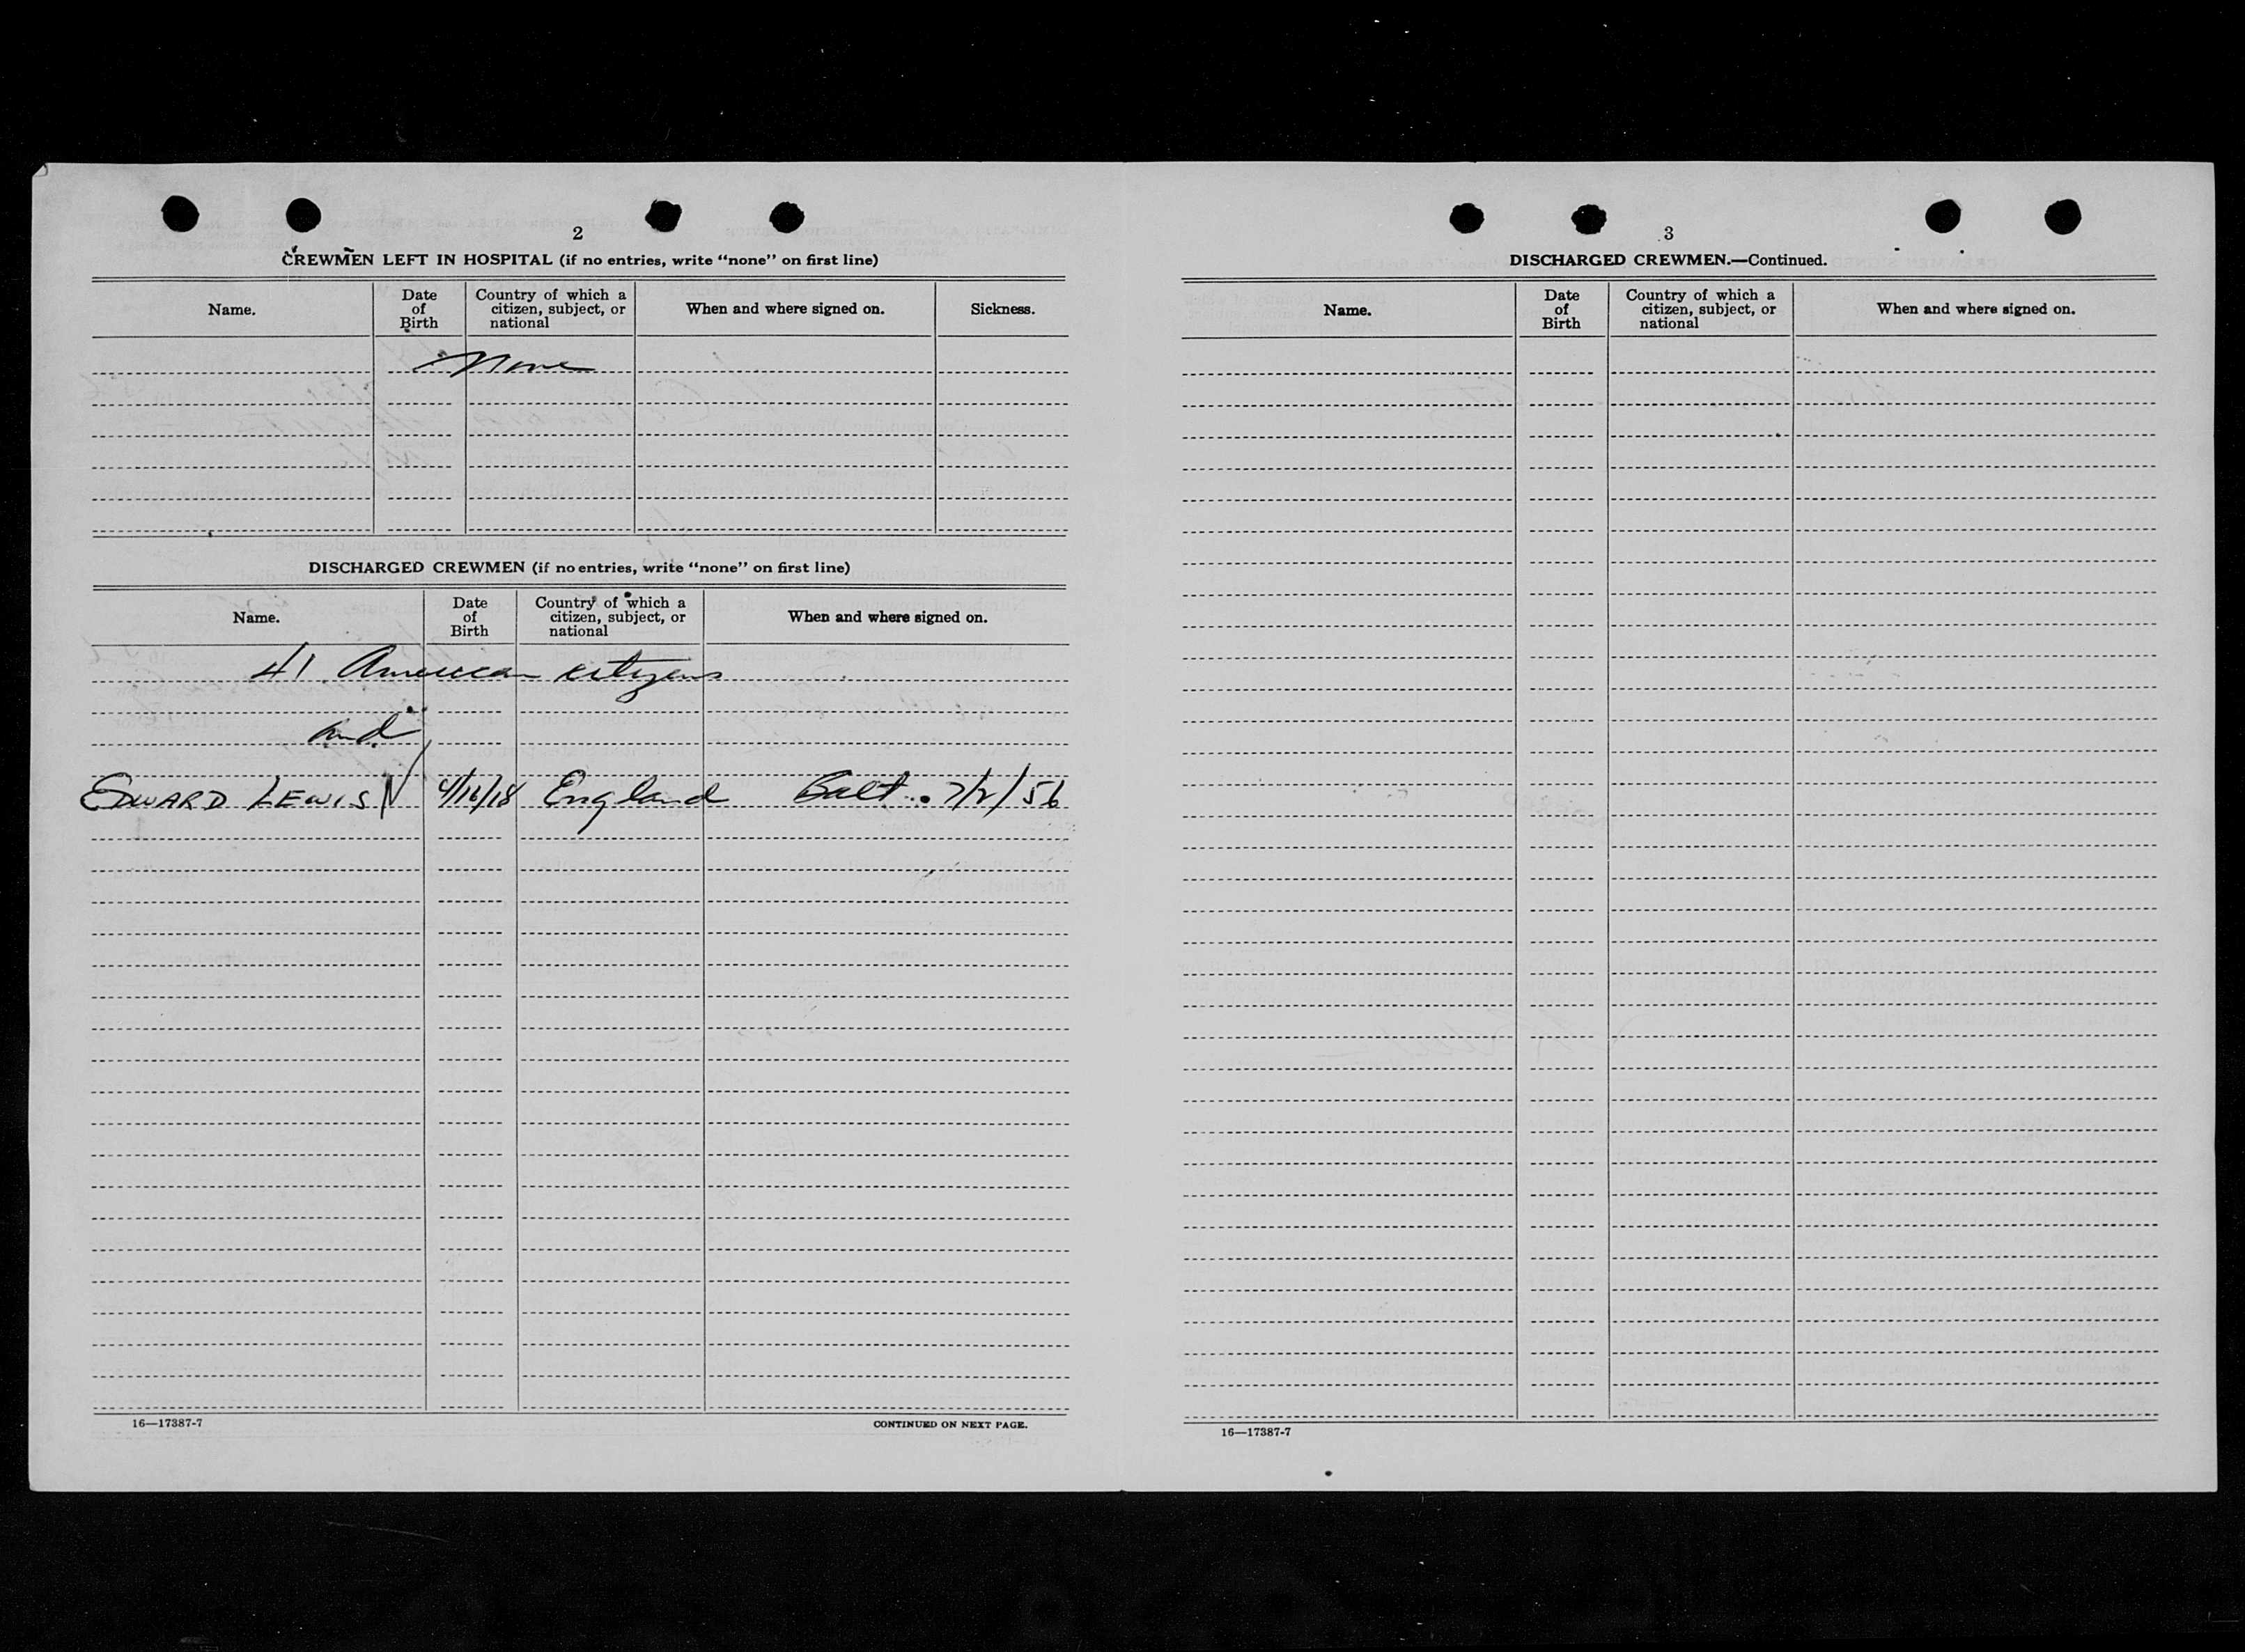 2
CREWMEN LEFT IN HOSPITAL (if no entries, write "none" on first line)
Name. Date of Birth Country of which a citizen, subject, or national When and where signed on. Sickness.
None
DISCHARGED CREWMEN (if no entries, write "none" on first line)
Name. Date of Birth Country of which a citizen, subject, or national When and where signed on.
41 American citizens
and
EDWARD LEWIS 4/16/18 England Balt. 7/2/56
16—17387-7 CONTINUED ON NEXT PAGE.
3
DISCHARGED CREWMEN.—Continued.
Name. Date of Birth Country of which a citizen, subject, or national When and where signed on.
16—17387-7